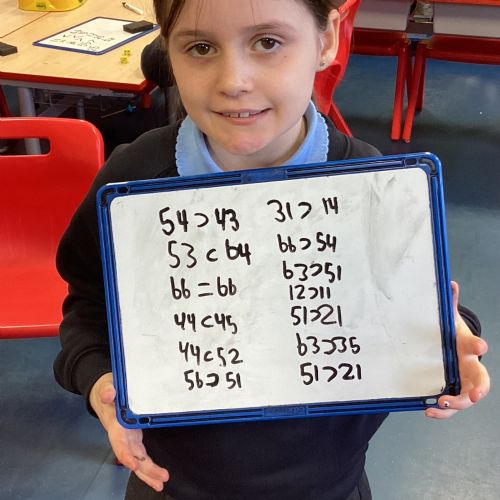 54 > 43
53 < 64
66 = 66
44 < 45
44 < 52
56 > 51
31 > 14
66 > 54
63 > 51
12 > 11
51 > 21
63 > 35
51 > 21